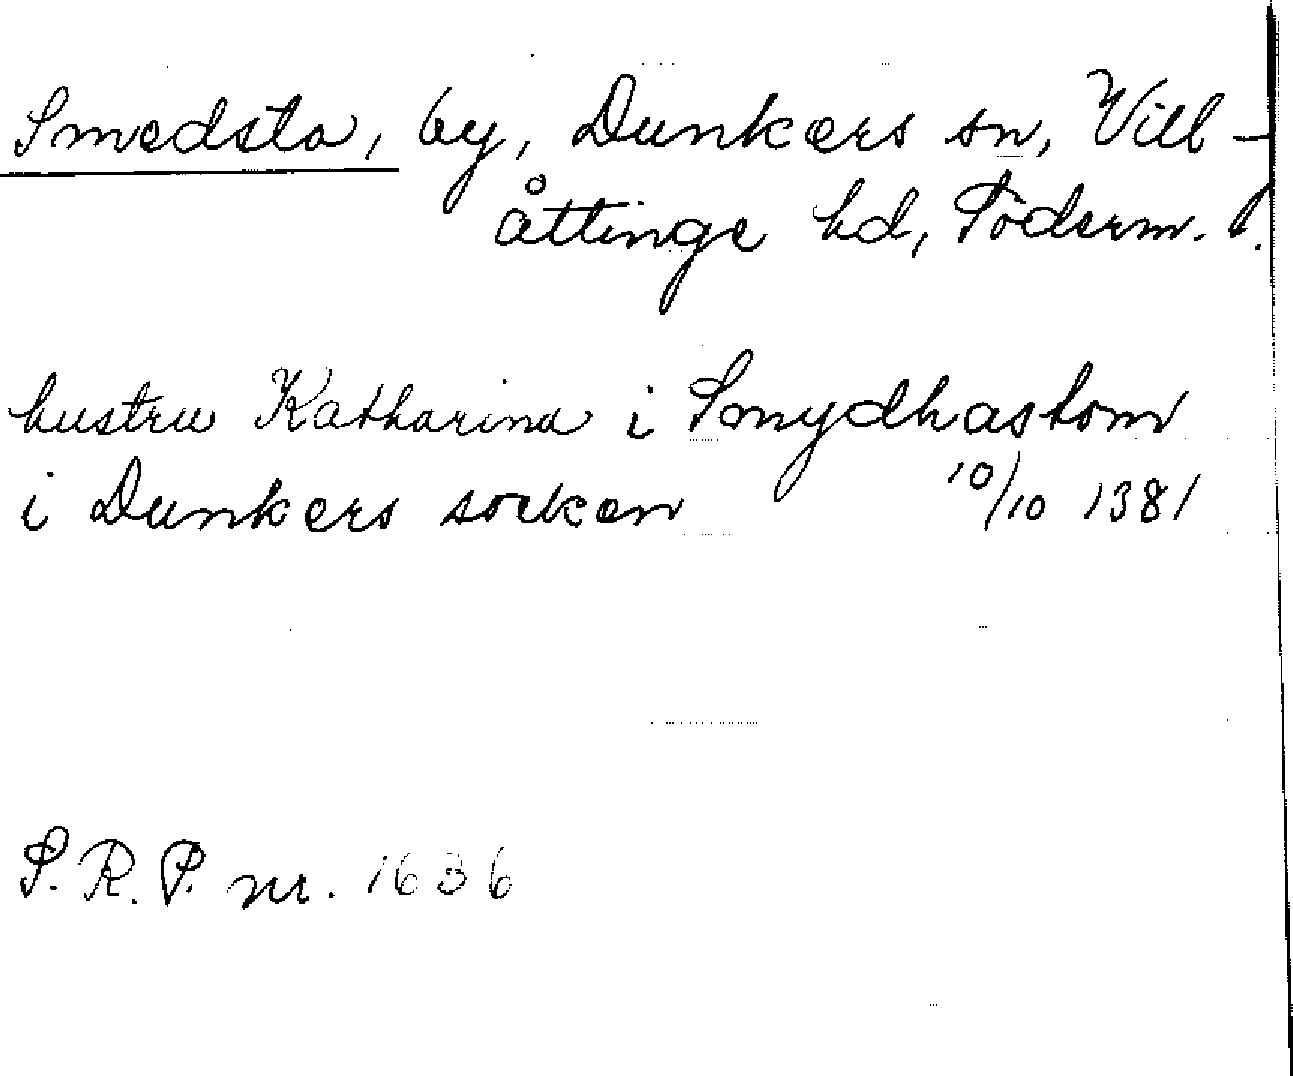 Smedsta, by, Dunkers sn, Vill-
åttinge hd, Söderm. l.
hustru Katharina i Smydhastom
i Dunkers socken 10/10 1381
S. R. P. nr. 1636